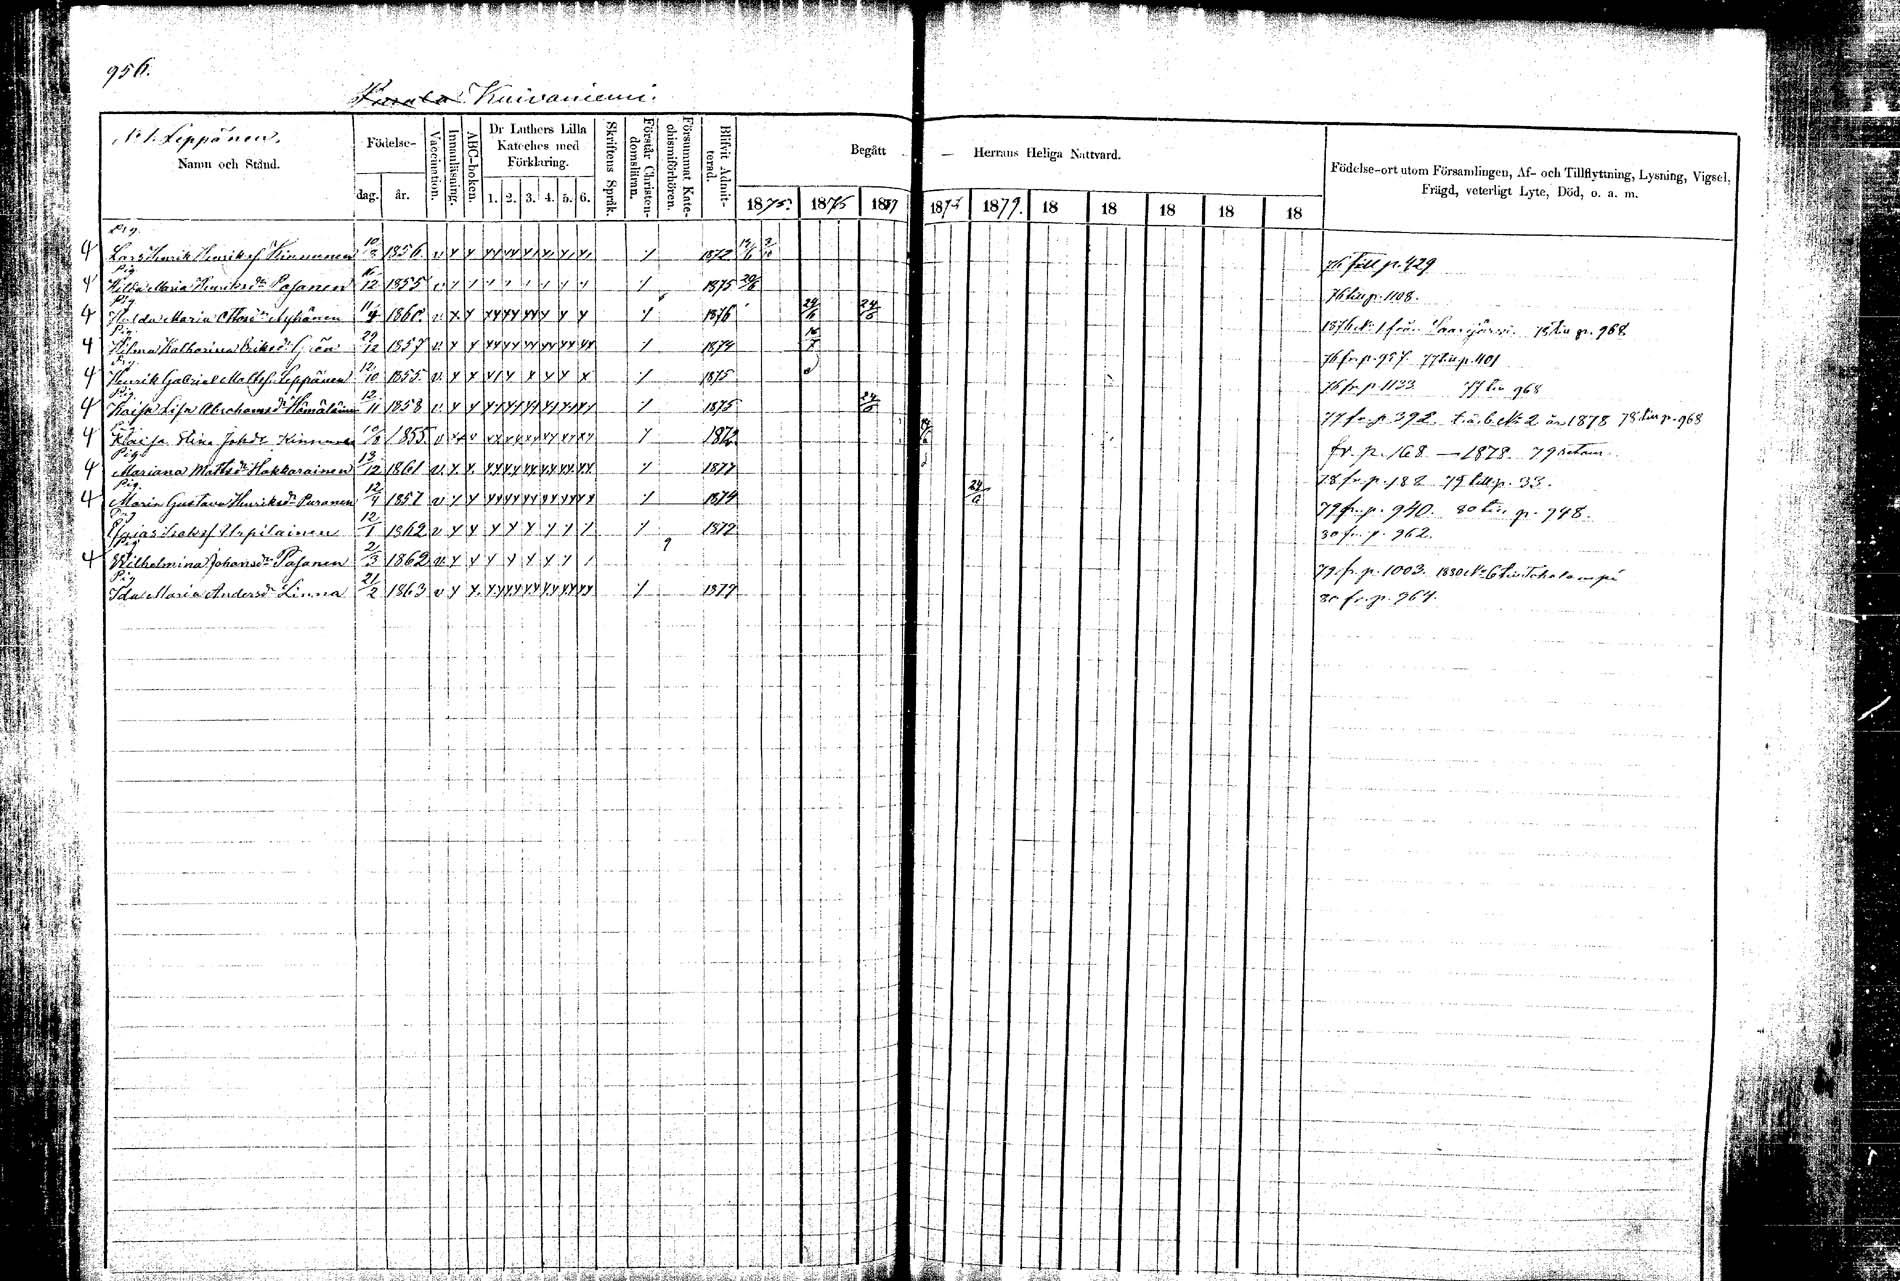 956.
Kuivaniemi.
No 1. Leppänen.
Namn och Stånd.
Födelse-
dag. år.
Vaccination.
Innanläsning.
ABC-boken.
Dr Luthers Lilla Kateches med Förklaring.
1. 2. 3. 4. 5. 6.
Skriftens Språk.
Förstår Christendomslärnn.
Försummat Katechismiförhören.
Blifvit Admitterad.
Begått — Herrans Heliga Nattvard.
1875. 1876 1877 1878 1879. 18 18 18 18 18
Födelse-ort utom Församlingen, Af- och Tillflyttning, Lysning, Vigsel, Frägd, veterligt Lyte, Död, o. a. m.
4 Lars Henrik Henrikss. Kinnunen 1856. v. 1872 76 till p. 429
Pig.
4 Hilda Maria Henriksdr Pasanen 16/12 1855 v 1875 20/6 76 till p. 1108.
Pig.
4 Hulda Maria Ottosdr Nyhänen 11/4 1860. v. 1876 24/6 24/6 1876 No 1 från Saarijärvi. 78 till p. 968
Pig.
4 Hilma Katharina Eriksdr Grön 29/12 1857 v. 1874 16/7 76 fr. p. 957. 77 till p. 1101
4 Henrik Gabriel Matts. Leppänen 12/10 1855. v. 1875 76 fr. p. 1133 77 till 968
Pig.
4 Kaisa Lisa Abrahamsdr Hämäläinen 12/11 1858 v. 1875 24/6 77 fr. p. 392. No 2 år 1878 78 till p. 968
Pig.
4 Kaisa Stina Kinnunen 10/8 1855. v 1872 fr. p. 168 — 1878. 79
Pig.
4 Mariana Mattsdr Hakkarainen 13/12 1861 v. 1877 78 fr. p. 188 79 till p. 33.
Pig.
4 Maria Gustava Henriksdr Puranen 12/4 1857 v 1874 24/6 79 fr. p. 940. 80 till p. 948.
Esias Urpilainen 12/1 1862 v 1872 80 fr. p. 962.
4 Wilhelmina Johansdr Pasanen 2/3 1862 v. 79 fr. p. 1003. 1880 No 6
Pig
Ida Maria Andersdr Linna 21/2 1863 v 1879 80 fr. p. 964.